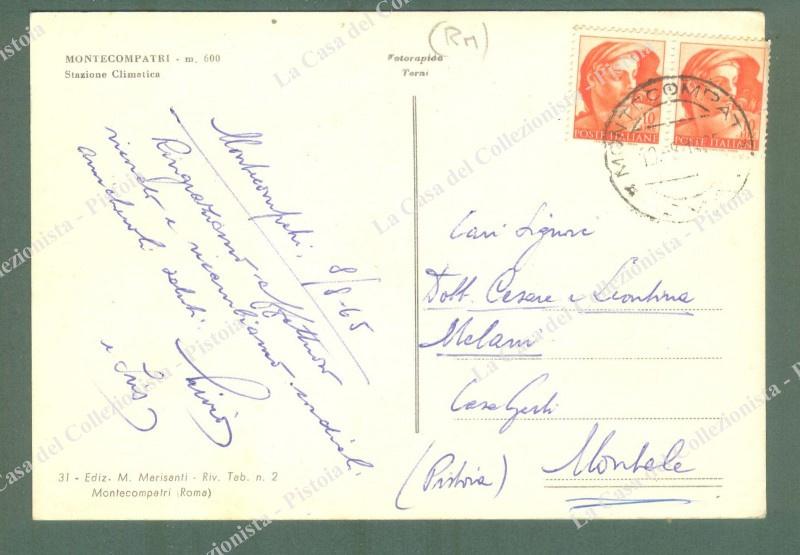 MONTECOMPATRI - m. 600
Stazione Climatica
Fotorapida
Terni
(RM)
10
POSTE ITALIANE
POSTE ITALIANE
MONTECOMPAT
Montecompatri, 8/8-65
Ringraziamo affettuoso
ricordo e ricambiamo cordiali,
amichevoli saluti.
Livio
e Iris
Cari Signori
Dott. Cesare e Leontina
Melani
Casa Gerli
Montale
(Pistoia)
31 - Ediz. M. Merisanti - Riv. Tab. n. 2
Montecompatri (Roma)
La Casa del Collezionista - Pistoia